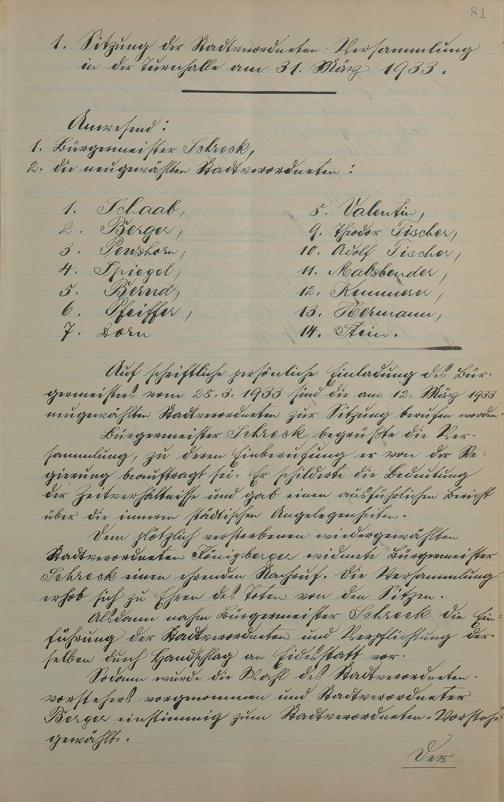 81
1. Sitzung der Stadtverordneten-Versammlung
in der Turnhalle am 31. März 1933.
Anwesend:
1. Bürgermeister Schreck,
2. die neugewählten Stadtverordneten:
1. Schaab,
2. Berger,
3. Penshorn,
4. Spiegel,
5. Bernd,
6. Pfeiffer,
7. Born
8. Valentin,
9. Theodor Fischer,
10. Adolf Fischer,
11. Matzbender,
12. Kemmerer,
13. Hermann,
14. Stein.
Auf schriftliche persönliche Einladung des Bür-
germeisters vom 28.3.1933 sind die am 12. März 1933
neugewählten Stadtverordneten zur Sitzung berufen worden.
Bürgermeister Schreck begrüßte die Ver-
sammlung, zu deren Einberufung er von der Re-
gierung beauftragt sei. Er schilderte die Bedeutung
der Zeitverhältnisse und gab einen ausführlichen Bericht
über die inneren städtischen Angelegenheiten.
Dem plötzlich verstorbenen wiedergewählten
Stadtverordneten Königsberger widmete Bürgermeister
Schreck einen ehrenden Nachruf. Die Versammlung
erhob sich zu Ehren des Toten von den Sitzen.
Alsdann nahm Bürgermeister Schreck die Ein=
führung der Stadtverordneten und Verpflichtung der-
selben durch Handschlag an Eidesstatt vor.
Sodann wurde die Wahl des Stadtverordneten-
vorstehers vorgenommen und Stadtverordneter
Berger einstimmig zum Stadtverordneten-Vorsteher
gewählt.
Der